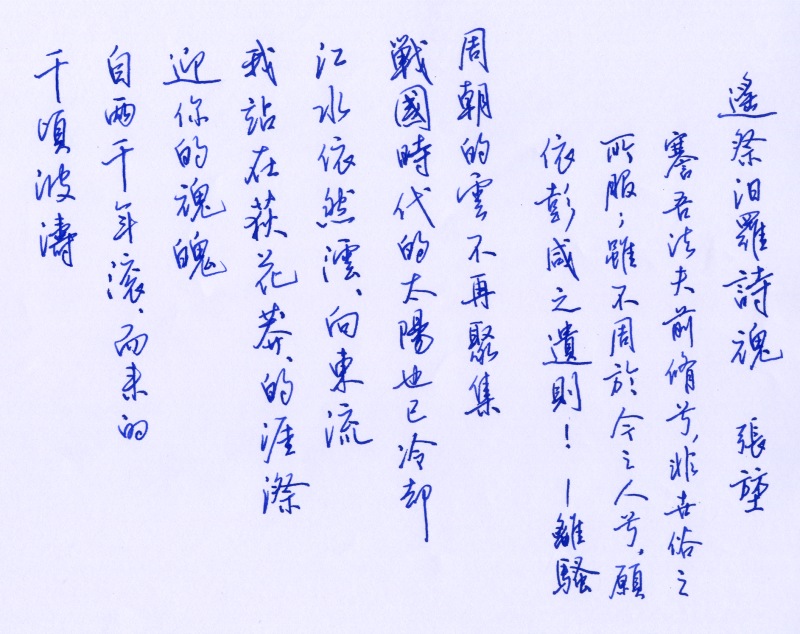 遙祭汨羅詩魂 張堃
謇吾法夫前脩兮,非世俗之
所服;雖不周於今之人兮,願
依彭咸之遺則!—離騷
周朝的雲不再聚集
戰國時代的太陽也已冷却
江水依然澐、向東流
我站在荻花莽、的涯漈
迎你的魂魄
自兩千年滾、而来的
千頃波濤